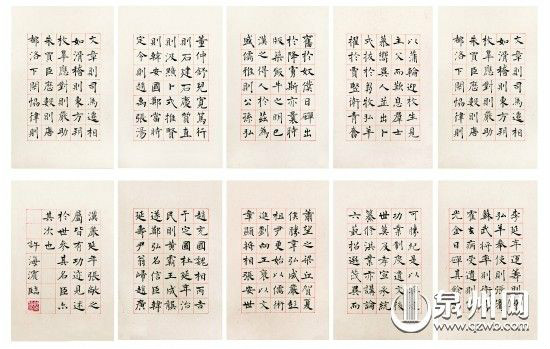 文章則司馬遷相
如滑稽則東方朔
枚皋應對則嚴助
朱買臣歷數則唐
都洛下閎協律則
以蒲輪迎枚生見
主父而歎息群士
慕嚮異人並出卜
式拔於芻牧弘羊
擢於賈豎衛青奮
奮於奴僕日磾出
於降虜斯亦曩時
版築飯牛之明已
漢之得人於茲為
盛儒雅則公孫弘
董仲舒兒寬篤行
則石建石慶質直
則汲黯卜式推賢
則韓安國鄭當時
定令則趙禹張湯
文章則司馬遷相
如滑稽則東方朔
枚皋應對則嚴助
朱買臣歷數則唐
都洛下閎協律則
李延年運籌則
弘羊奉使則
蘇武將率則
霍去病受遺
光金日磾其餘
可勝紀是以
功業制度遺文後
世莫及孝宣承統
纂修洪業亦講論
六藝招選茂異而
蕭望之梁丘賀夏
侯勝韋弘成嚴彭
祖尹更始以儒術
進劉向王褒以文
章顯將相張安世
趙充國魏相丙吉
于定國杜延年治
民則黃霸王成龔
遂鄭弘召信臣韓
延壽尹翁歸趙廣
漢嚴延年張敞之
屬皆有功迹見述
於世參其名臣亦
其次也
許海濱臨
泉州网
www.qzwb.com